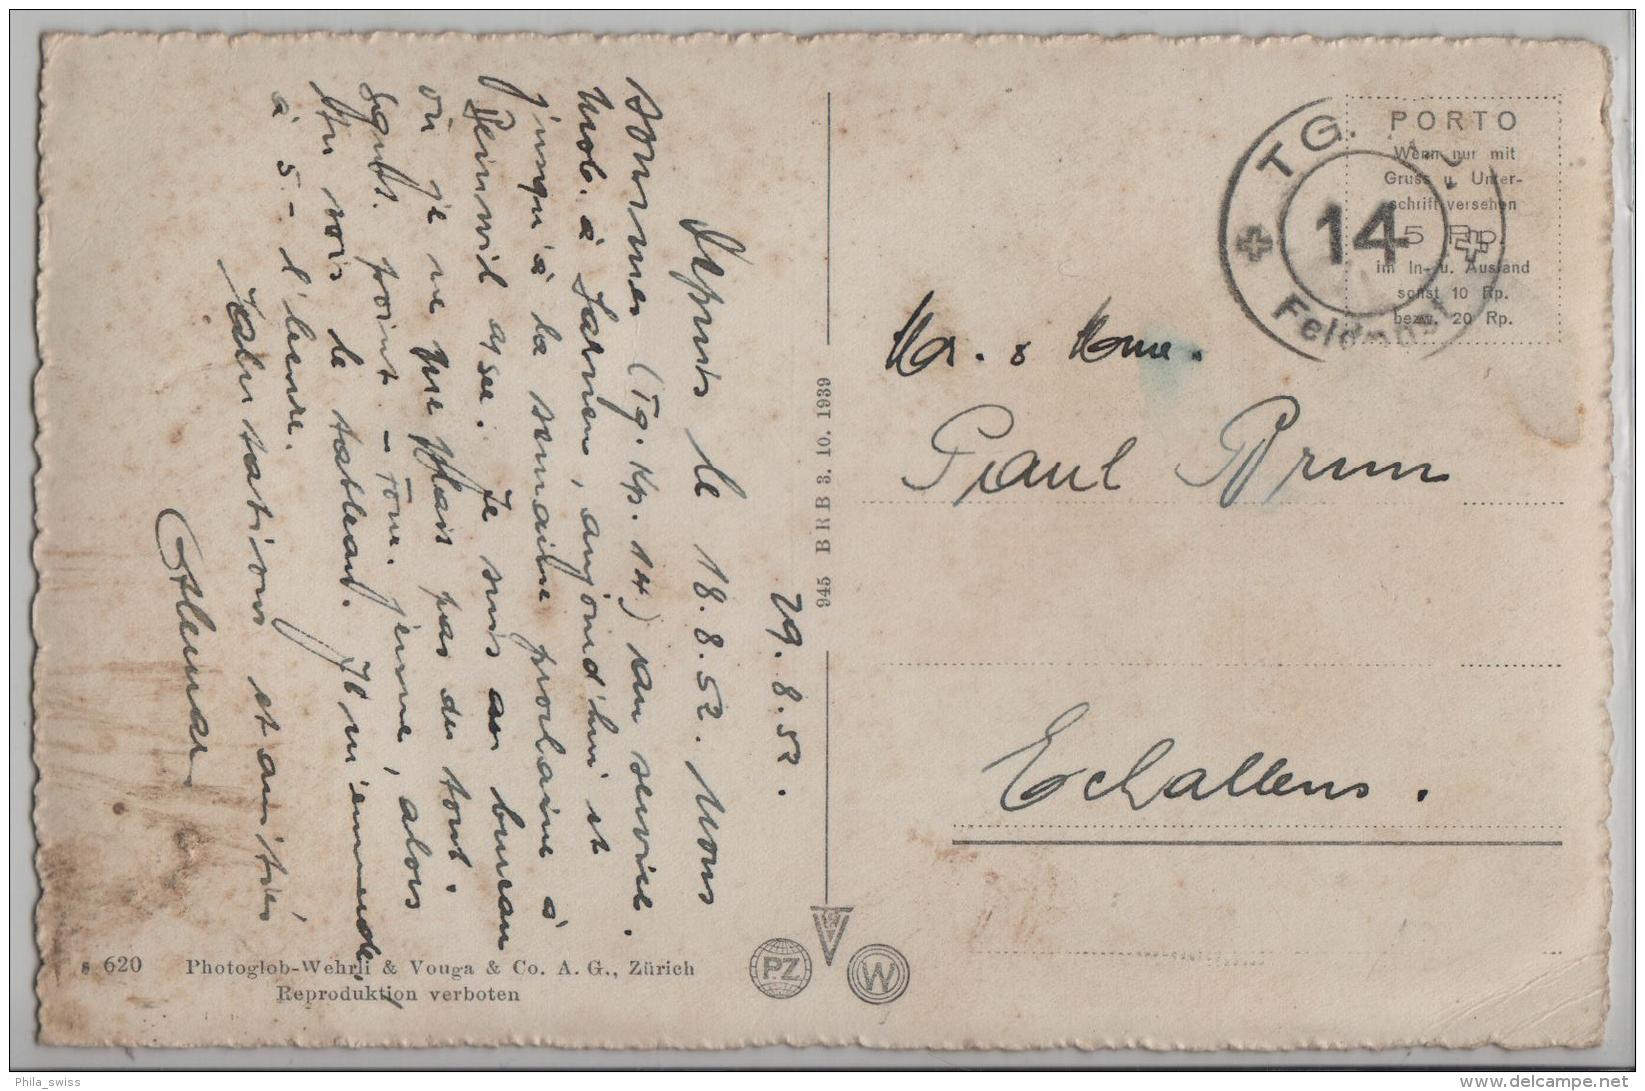 29.8.52.
Depuis le 18.8.52. nous
sommes (Tg. Kp. 14) au service.
Mob. à Sarnen, aujourd'hui et
jusqu'à la semaine prochaine à
Beinwil a/see. Je suis au bureau
où je ne me plais pas du tout.
point - jeune, alors
tu vois le tableau. Il m'emmerde,
à 5.- l'heure.
Salutations et amitiés
TG.
14
Feldpost
PORTO
Wenn nur mit
Gruss u. Unter-
schrift versehen
5 Rp.
im In- u. Ausland
sonst 10 Rp.
bezw. 20 Rp.
Mr. & Mme.
Paul Brun
Echallens.
945 BRB 3. 10. 1939
s 620 Photoglob-Wehrli & Vouga & Co. A. G., Zürich
Reproduktion verboten
PZ
W
Phila_swiss
delcampe.net